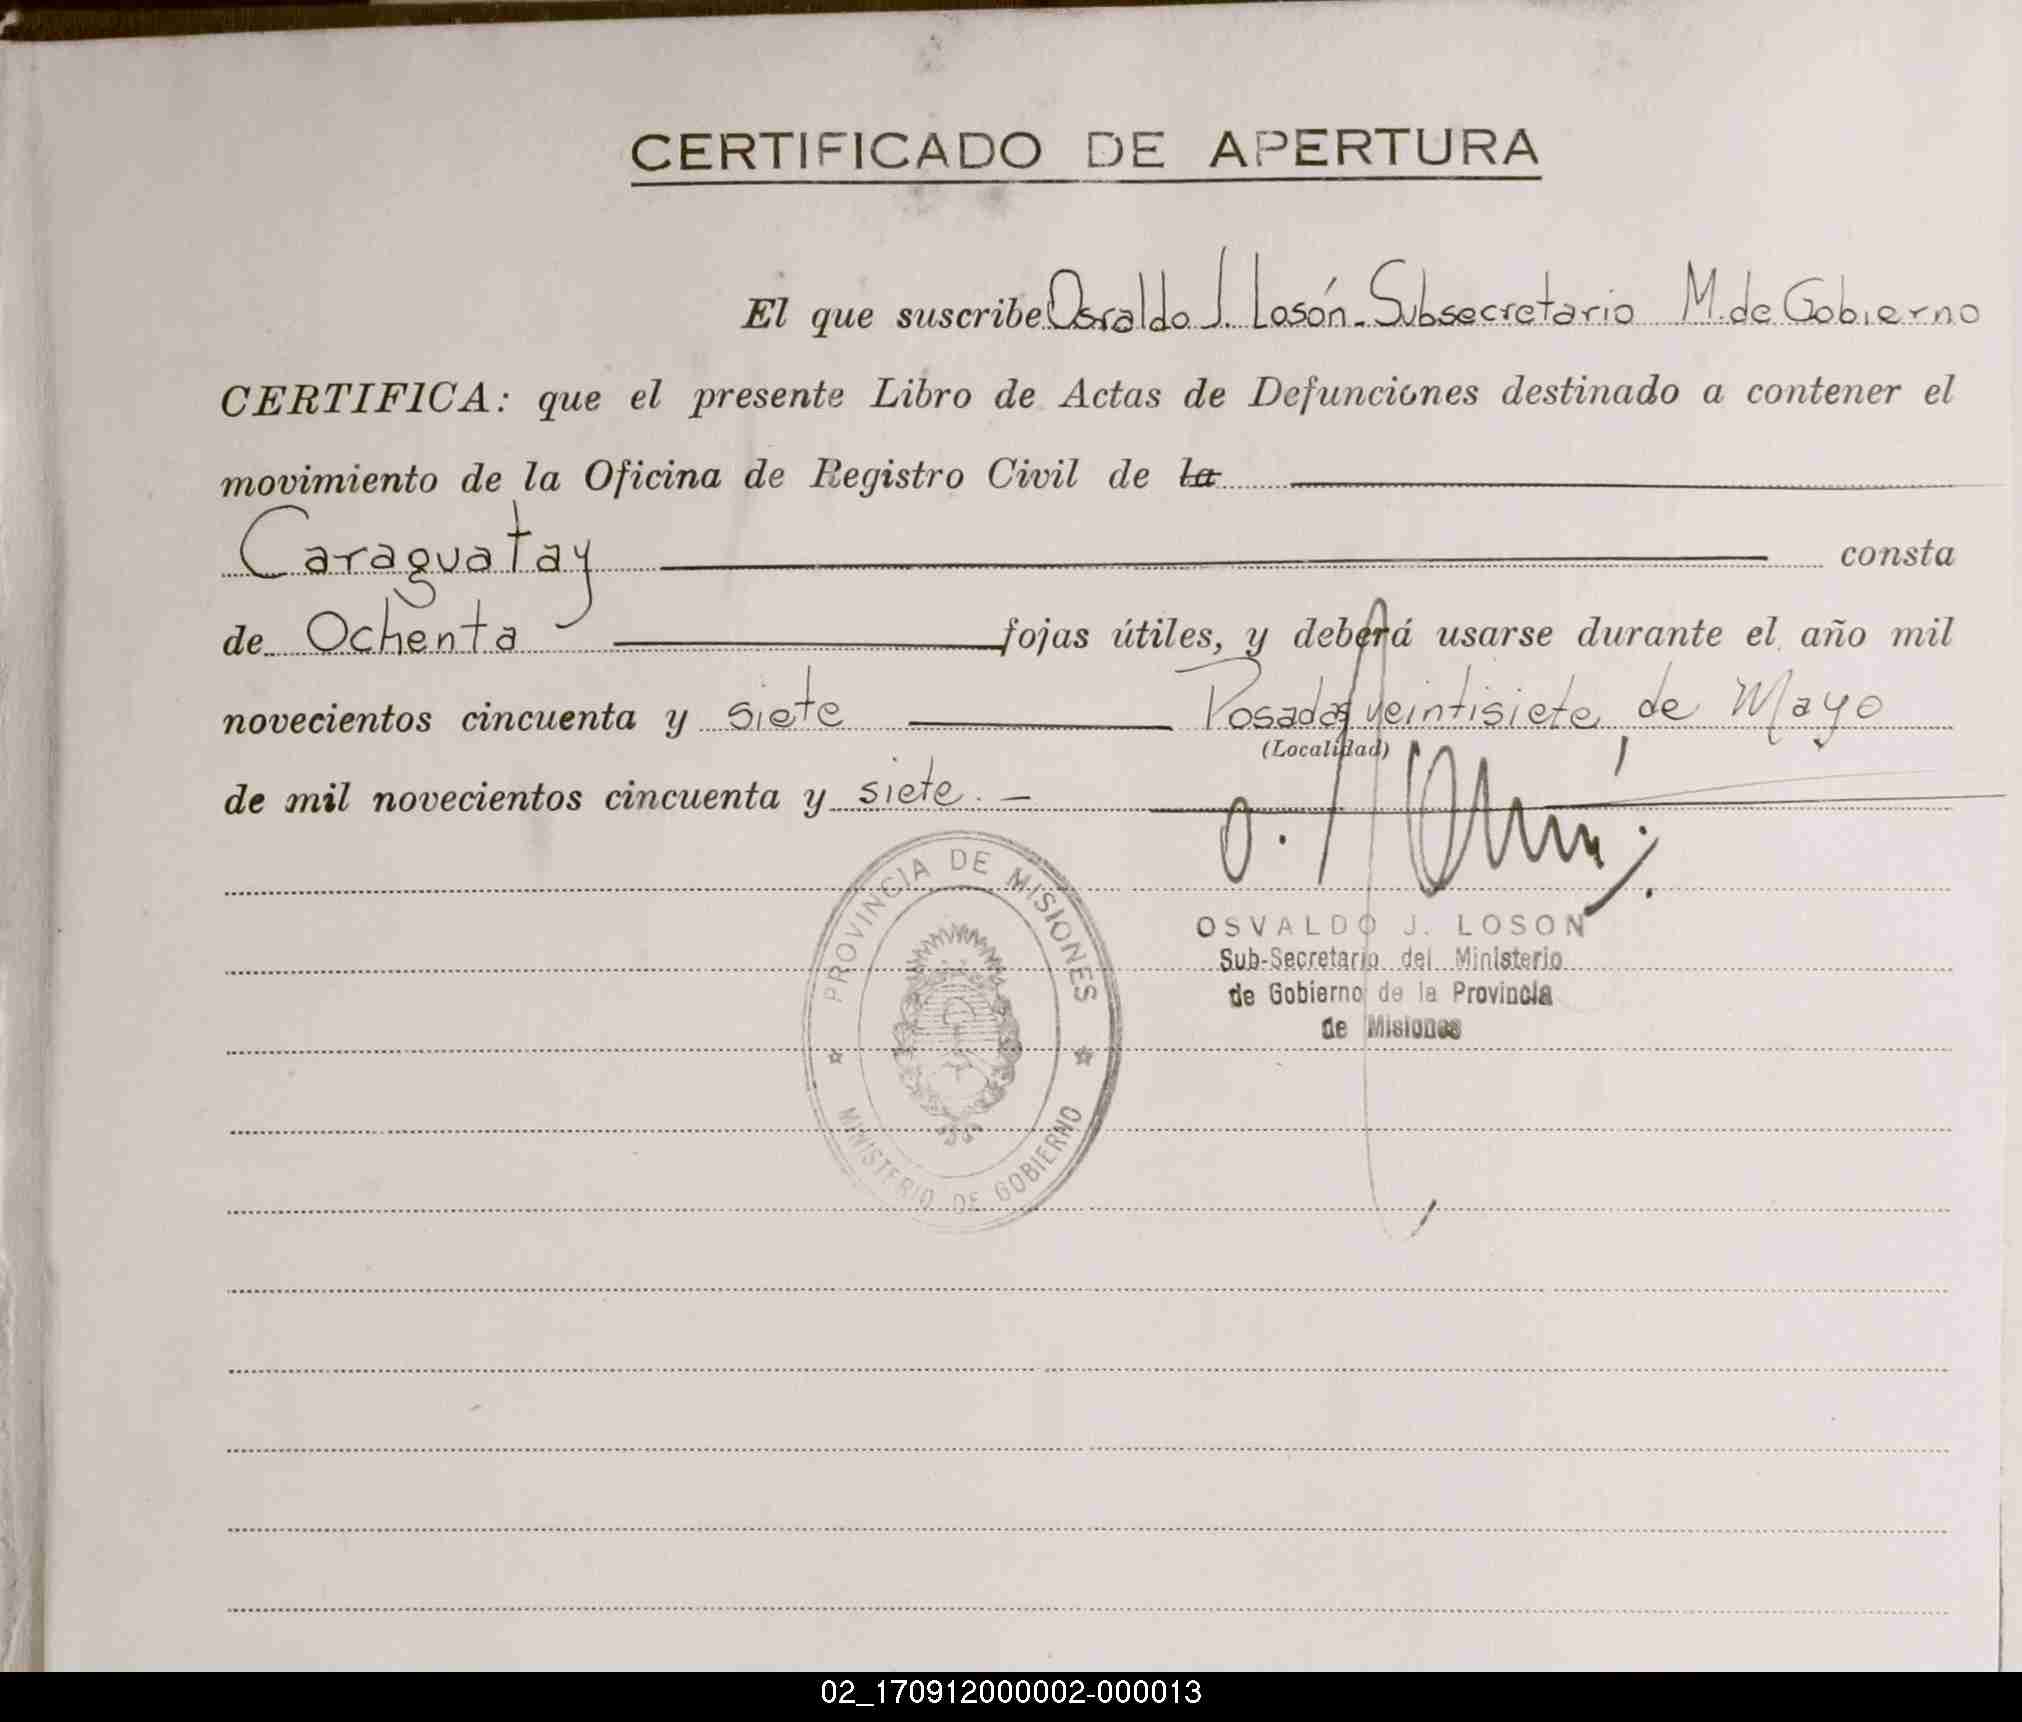 CERTIFICADO DE APERTURA
El que suscribe Osvaldo J. Losón.-Subsecretario M. de Gobierno
CERTIFICA: que el presente Libro de Actas de Defunciones destinado a contener el
movimiento de la Oficina de Registro Civil de la
Caraguatay consta
de Ochenta fojas útiles, y deberá usarse durante el año mil
novecientos cincuenta y siete Posadas, veintisiete de Mayo
(Localidad)
de mil novecientos cincuenta y siete.-
PROVINCIA DE MISIONES
MINISTERIO DE GOBIERNO
OSVALDO J. LOSON
Sub-Secretario del Ministerio
de Gobierno de la Provincia
de Misiones
02_170912000002-000013